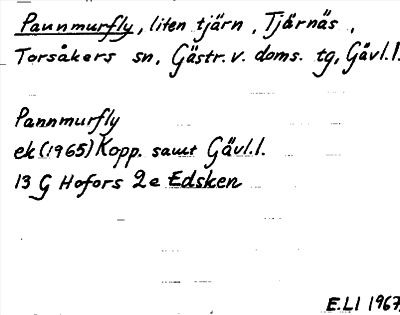 Pannmurfly, liten tjärn, Tjärnäs,
Torsåkers sn, Gästr. v. doms. tg, Gävl.l.
Pannmurfly
ek (1965) Kopp. samt Gävl.l.
13 G Hofors 2e Edsken
E.LI 1967